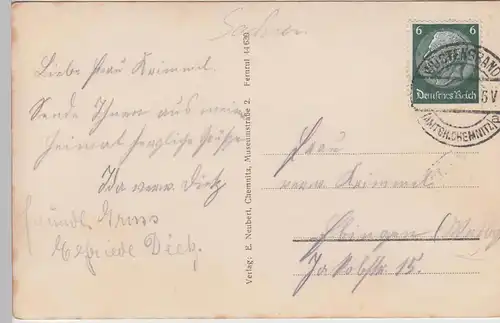 Sachsen
Liebe Frau Krimmel.
Sende Ihnen aus meiner
Heimat herzliche Grüße
Ida verw. Dietz
freundl. Gruss
Elfriede Dietz.
Verlag: E. Neubert, Chemnitz, Museumstraße 2. Fernruf 44630
6 6
Deutsches Reich
(AMTSH. CHEMNITZ)
Frau
verw. Krimmel
Ebingen
Jakobstr. 15.